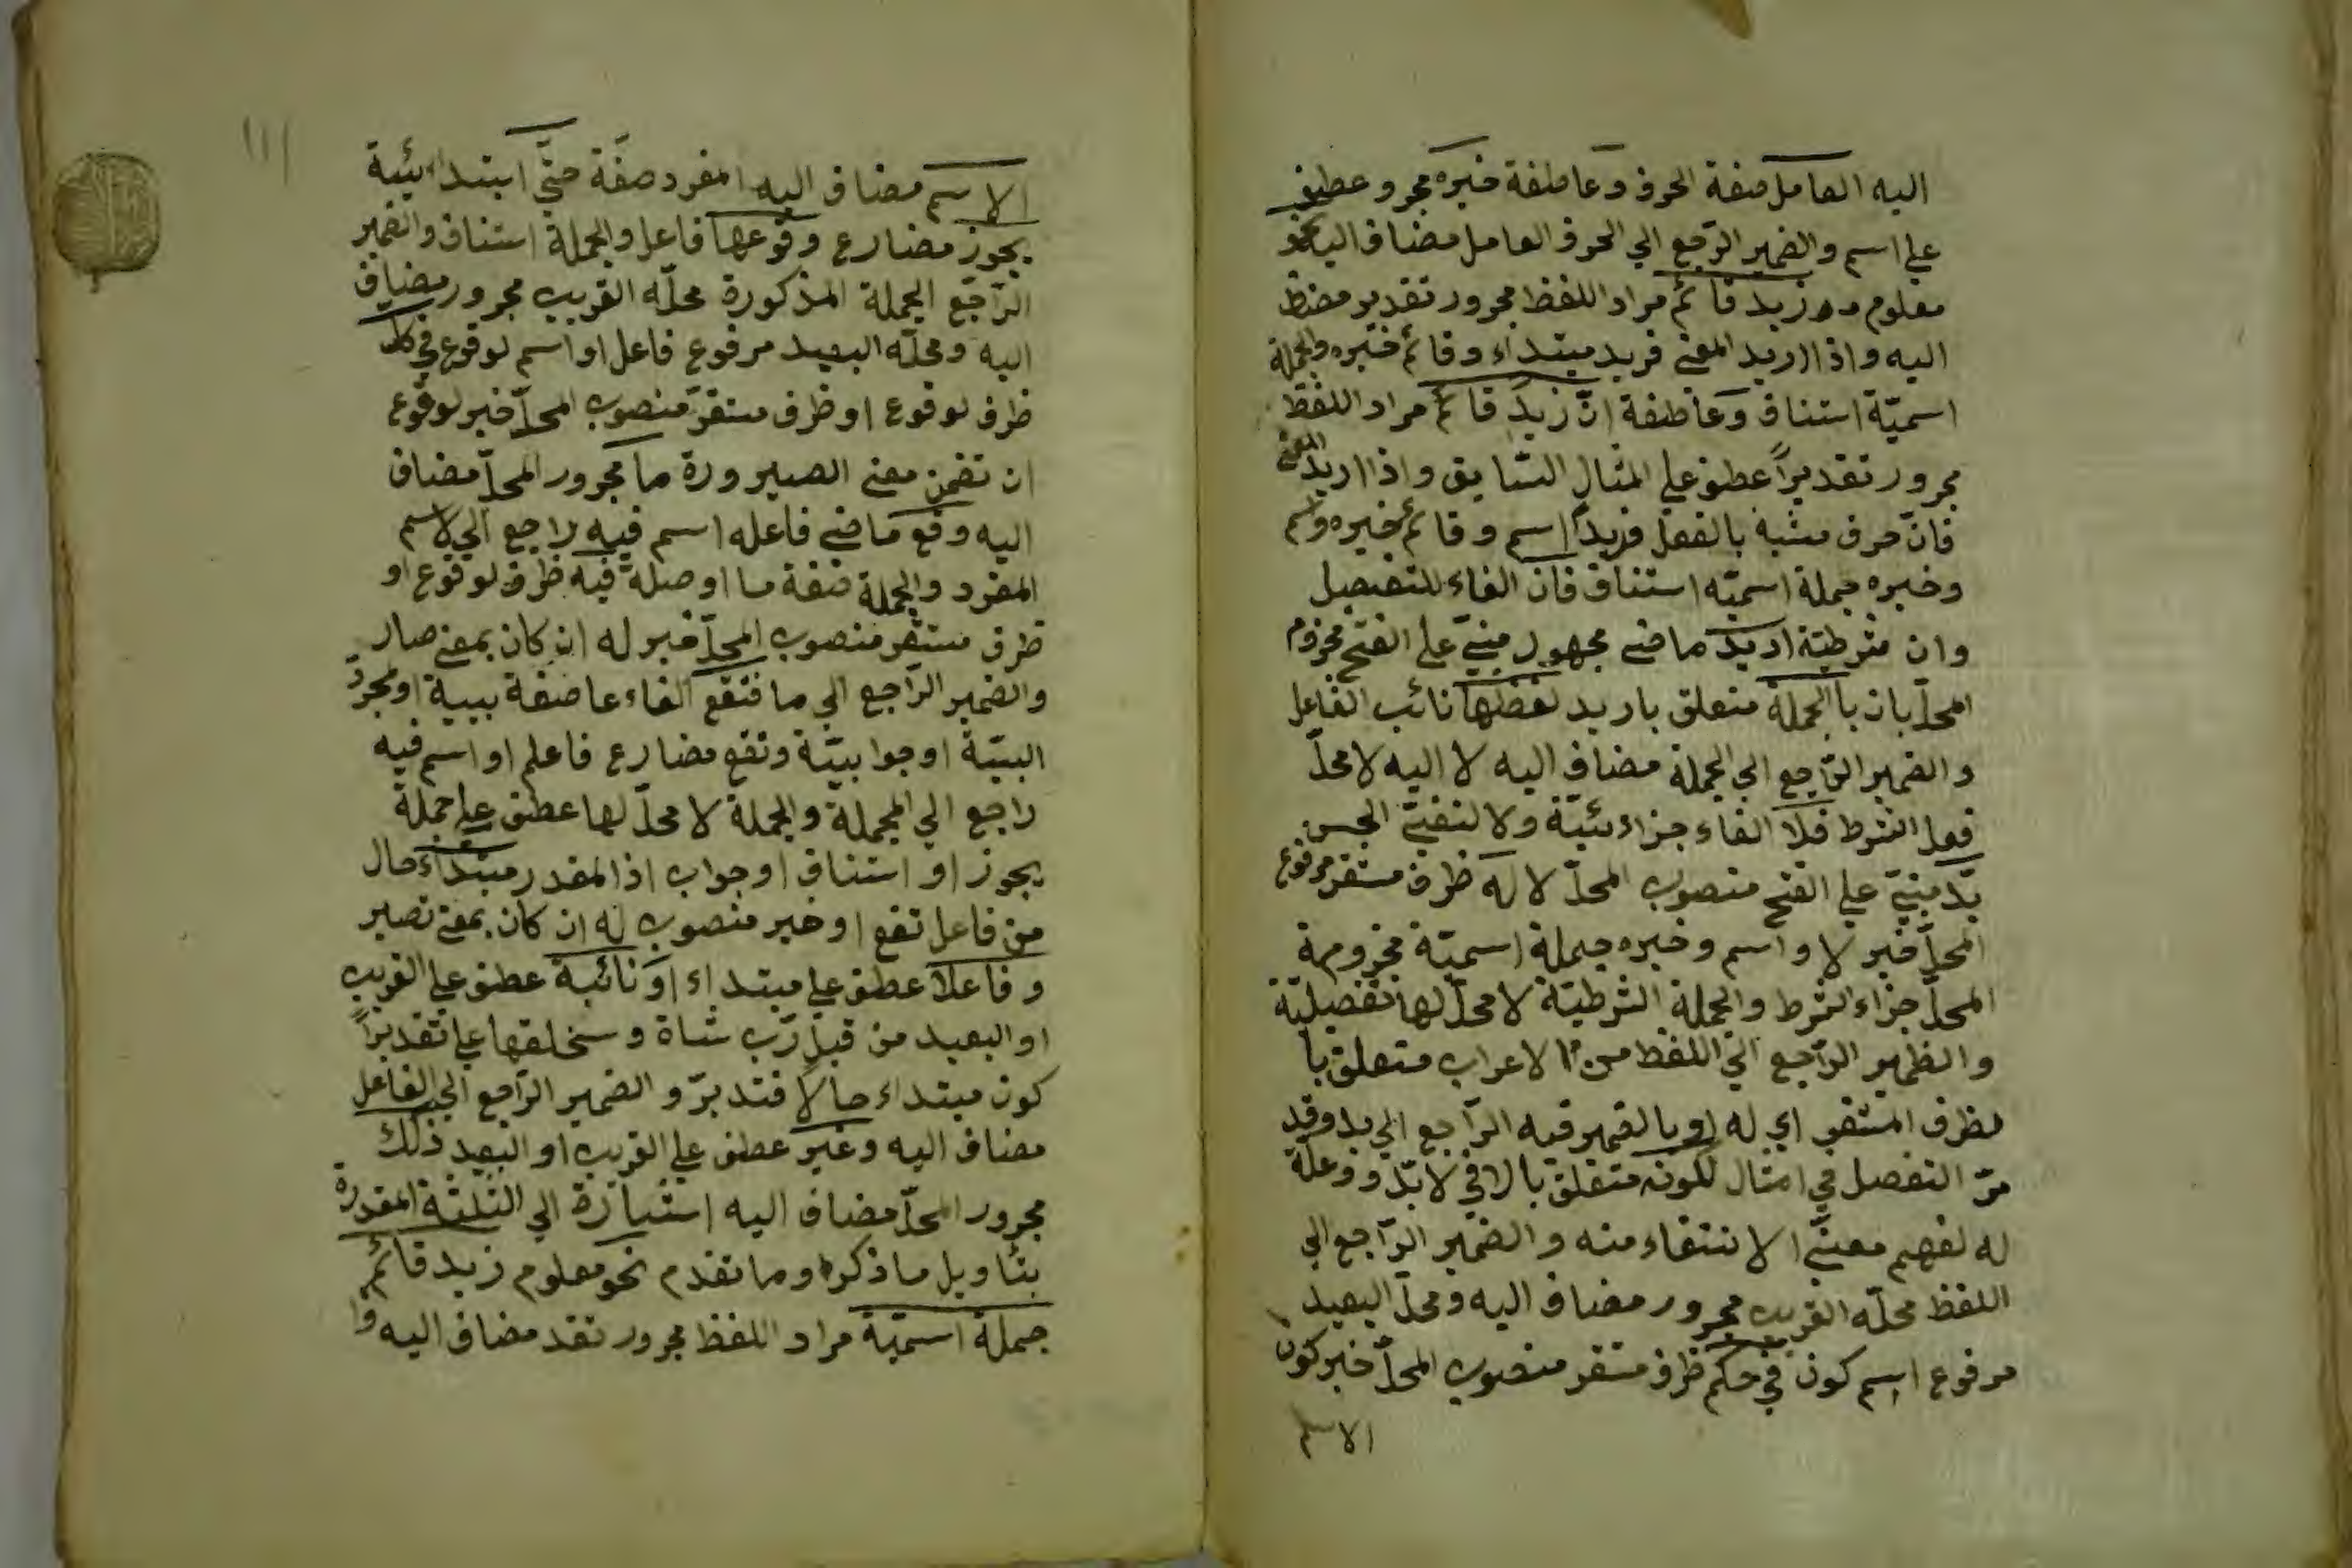 اليه العامل صفة الحرف وعاطفة خبره مجرو عطف
على اسم والضمير الراجع الي الحرف العامل مضاف اليه نحو
معلوم زيد قائم مراد اللفظ مجرور تقدير مضاف
اليه واذا اريد المعنى فزيد مبتداء وقائم خبره والجملة
اسميّة استناف وعاطفة انّ زيدا قائم مراد اللفظ
مجرور تقديراً عطف علي المثال السّابق واذا اريد المعنى
فانّ حرف مشبه بالفعل فزيداً اسم وقائم خبره واسم
وخبره جملة اسميّه استناف فان الفاء للتفصيل
وان شرطيّة اريد ماضى مجهول مبنيّ على الفتح مجزوم
المحلّ بان با الجملة متعلق باريد لفظها نائب الفاعل
والضمير الرّاجع الي الجملة مضاف اليه لا اليه لا محلّ
فعل الشرط فلا الفاء جزاءئيّة ولا لنفيّ الجسن
بدّ مبنيّ علي الفتح منصوب المحلّ لا له ظرف مستقر مرفوع
المحلّ خبر لا واسم وخبره جملة اسميّة مجزومة
المحلّ جزاء الشرط والجملة الشرطيّة لا محلّ لها تفصيليّة
والظمير الرّاجع الي اللفظ من الاعراب متعلق با
لظرف المستقر اي له او بالضمير فيه الرّاجع الي بد وقد
مرّ التفصل في امثال لكونه متعلق بالا في لا بدّ ووعلة
له لفهم معنيّ الانتفاء منه والضمير الرّاجع الي
اللفظ محلّه القريب مجرور مضاف اليه ومحلّ البعيد
مرفوع اسم كون في حكم ظرف مستقر منصوب المحلّ خبر كون
الاسم
١١١
الاسم مضاف اليه المفرد صفة حتّي ابتداءئية
يجوز مضارع وقوعها فاعل والجملة استناف والضمير
الرّاجع الجملة المذكورة محلّه القريب مجرور مضاف
اليه ومحلّه البعيد مرفوع فاعل او اسم لوقوع في كل
ظرف لوقوع او ظرف مستقرّ منصوب المحلّ خبر لوقوع
ان تضمن معنى الصيرورة ما مجرور المحلّ مضاف
اليه وقع ماضى فاعله اسم فيه راجع الي الاسم
المفرد والجملة صفة ما او صلة فيه ظرف لوقوع او
ظرف مستقر منصوب المحلّ خبر له ان كان بمعنى صار
والضمير الرّاجع الي ما فتقع الفاء عاطفة ببية او مجردّ
البيّة او جوابيّة وتقع مضارع فاعلم او اسم فيه
راجع الي الجملة والجملة لا محلّ لها عطف على جملة
يجوز او استناف او جواب اذا المقدر مبتداء حال
من فاعل تقع او خبر منصوب له ان كان بمعنى تصير
وفاعلا عطف علي مبتداء او نائبة عطف علي القريب
او البعيد من قبل ربّ شاة وسخلقها علي تقديراً
كون مبتداء حالا فتدبرّ والضمير الرّاجع الي الفاعل
مضاف اليه وغير عطف علي القريب او البعيد ذلك
مجرور المحلّ مضاف اليه استيارة الي الثلثة المقدرة
بتاويل ما ذكرا وما تقدم نحو معلوم زيد قائم
جملة اسميّة مراد اللفظ مجرور تقد مضاف اليه وا